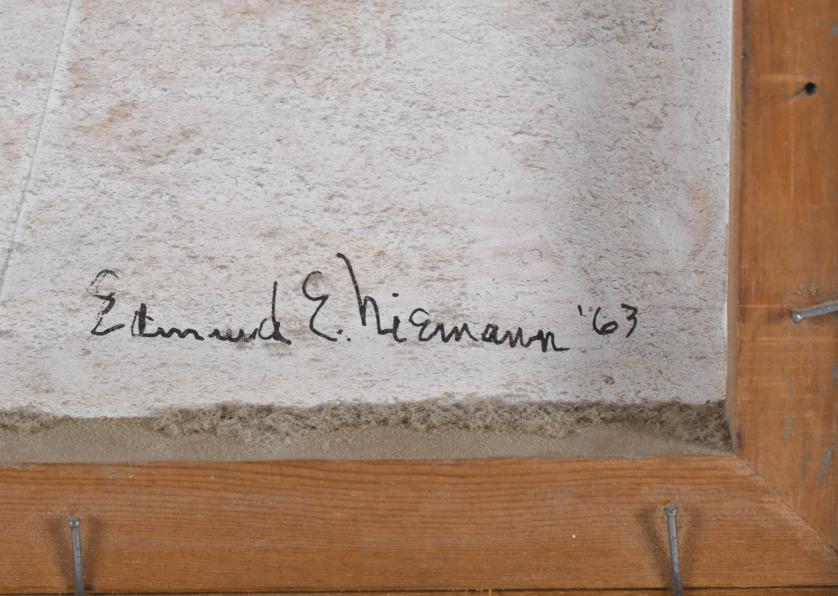 Edmund E. Niemann '63